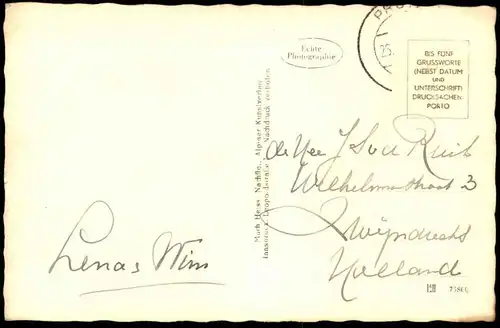 Echte
Photographie
BIS FÜNF
GRUSSWORTE
(NEBST DATUM
UND
UNTERSCHRIFT)
DRUCKSACHEN-
PORTO
Much Heiss Nachflg., Alpiner Kunstverlag
Innsbruck Nachdruck verboten
de Heer J v d Ruit
Wilhelminastraat 3
Zwijndrecht
Holland
Lena & Wim